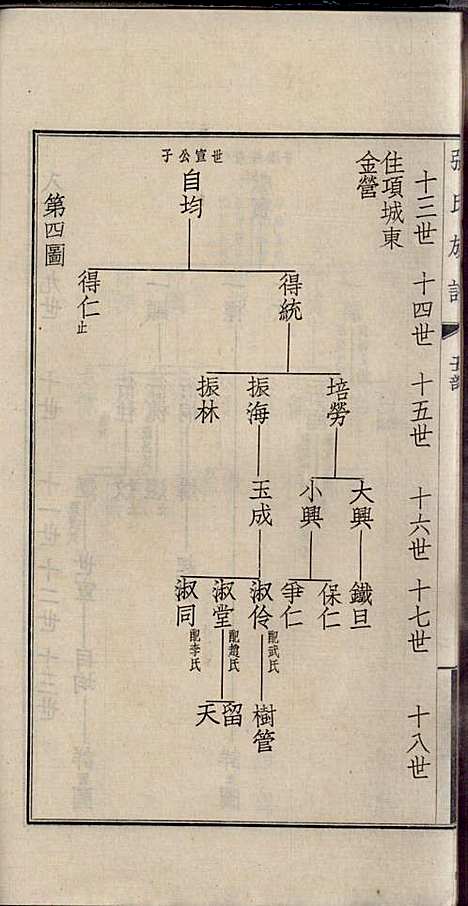 張氏族譜
十三世
十四世
十五世
十六世
十七世
十八世
住項城東
金營
世宣公子
自均
得統
得仁止
培勞
振海
振林
大興
小興
玉成
鐵旦
保仁
爭仁
淑伶配武氏
淑堂配趙氏
淑同配李氏
樹管
留
天
第四圖